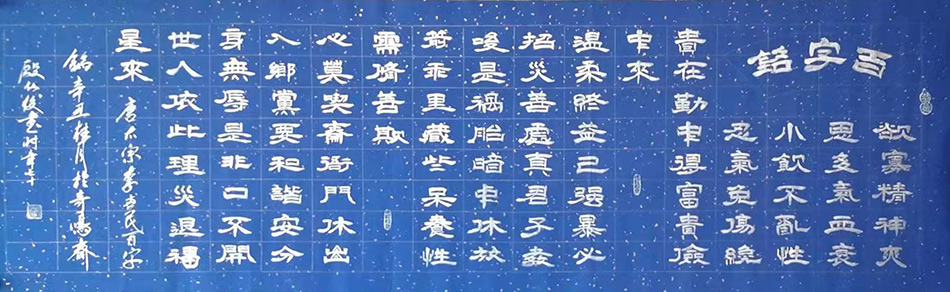 百字銘
欲寡精神爽
思多氣血衰
小飲不亂性
忍氣免傷
貴在勤中得富貴儉
中來
溫柔終益己强暴必
招災善處真君子
唆是禍胎暗中休放
箭乖里藏些呆養性
需脩善欺
心莫喫齋衙門休出
入鄉黨要和諧安分
身無辱是非口不開
世人依此理災退福
星來 唐太宗李世民百字
銘辛丑桂月於奇鳴齋
殷書時年七十